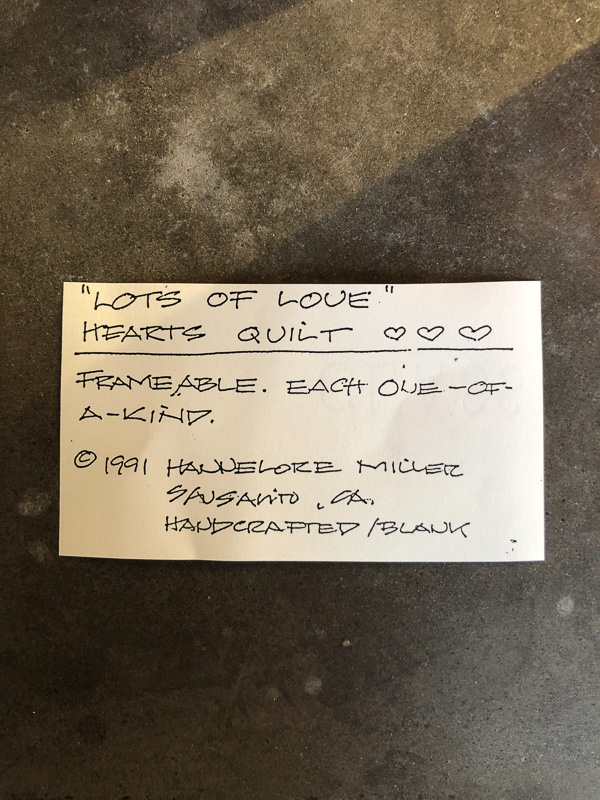 "LOTS OF LOVE"
HEARTS QUILT ♡♡♡
FRAMEABLE. EACH ONE-OF-
A-KIND.
© 1991 HANNELORE MILLER
SAUSALITO, CA.
HANDCRAFTED/BLANK